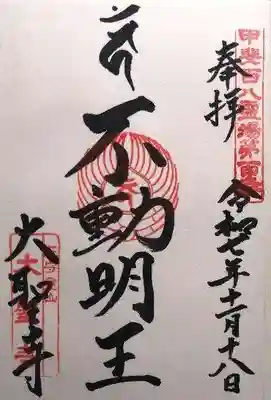 甲斐百八霊場第百番
奉拝
令和七年十二月十八日
不動明王
大聖寺